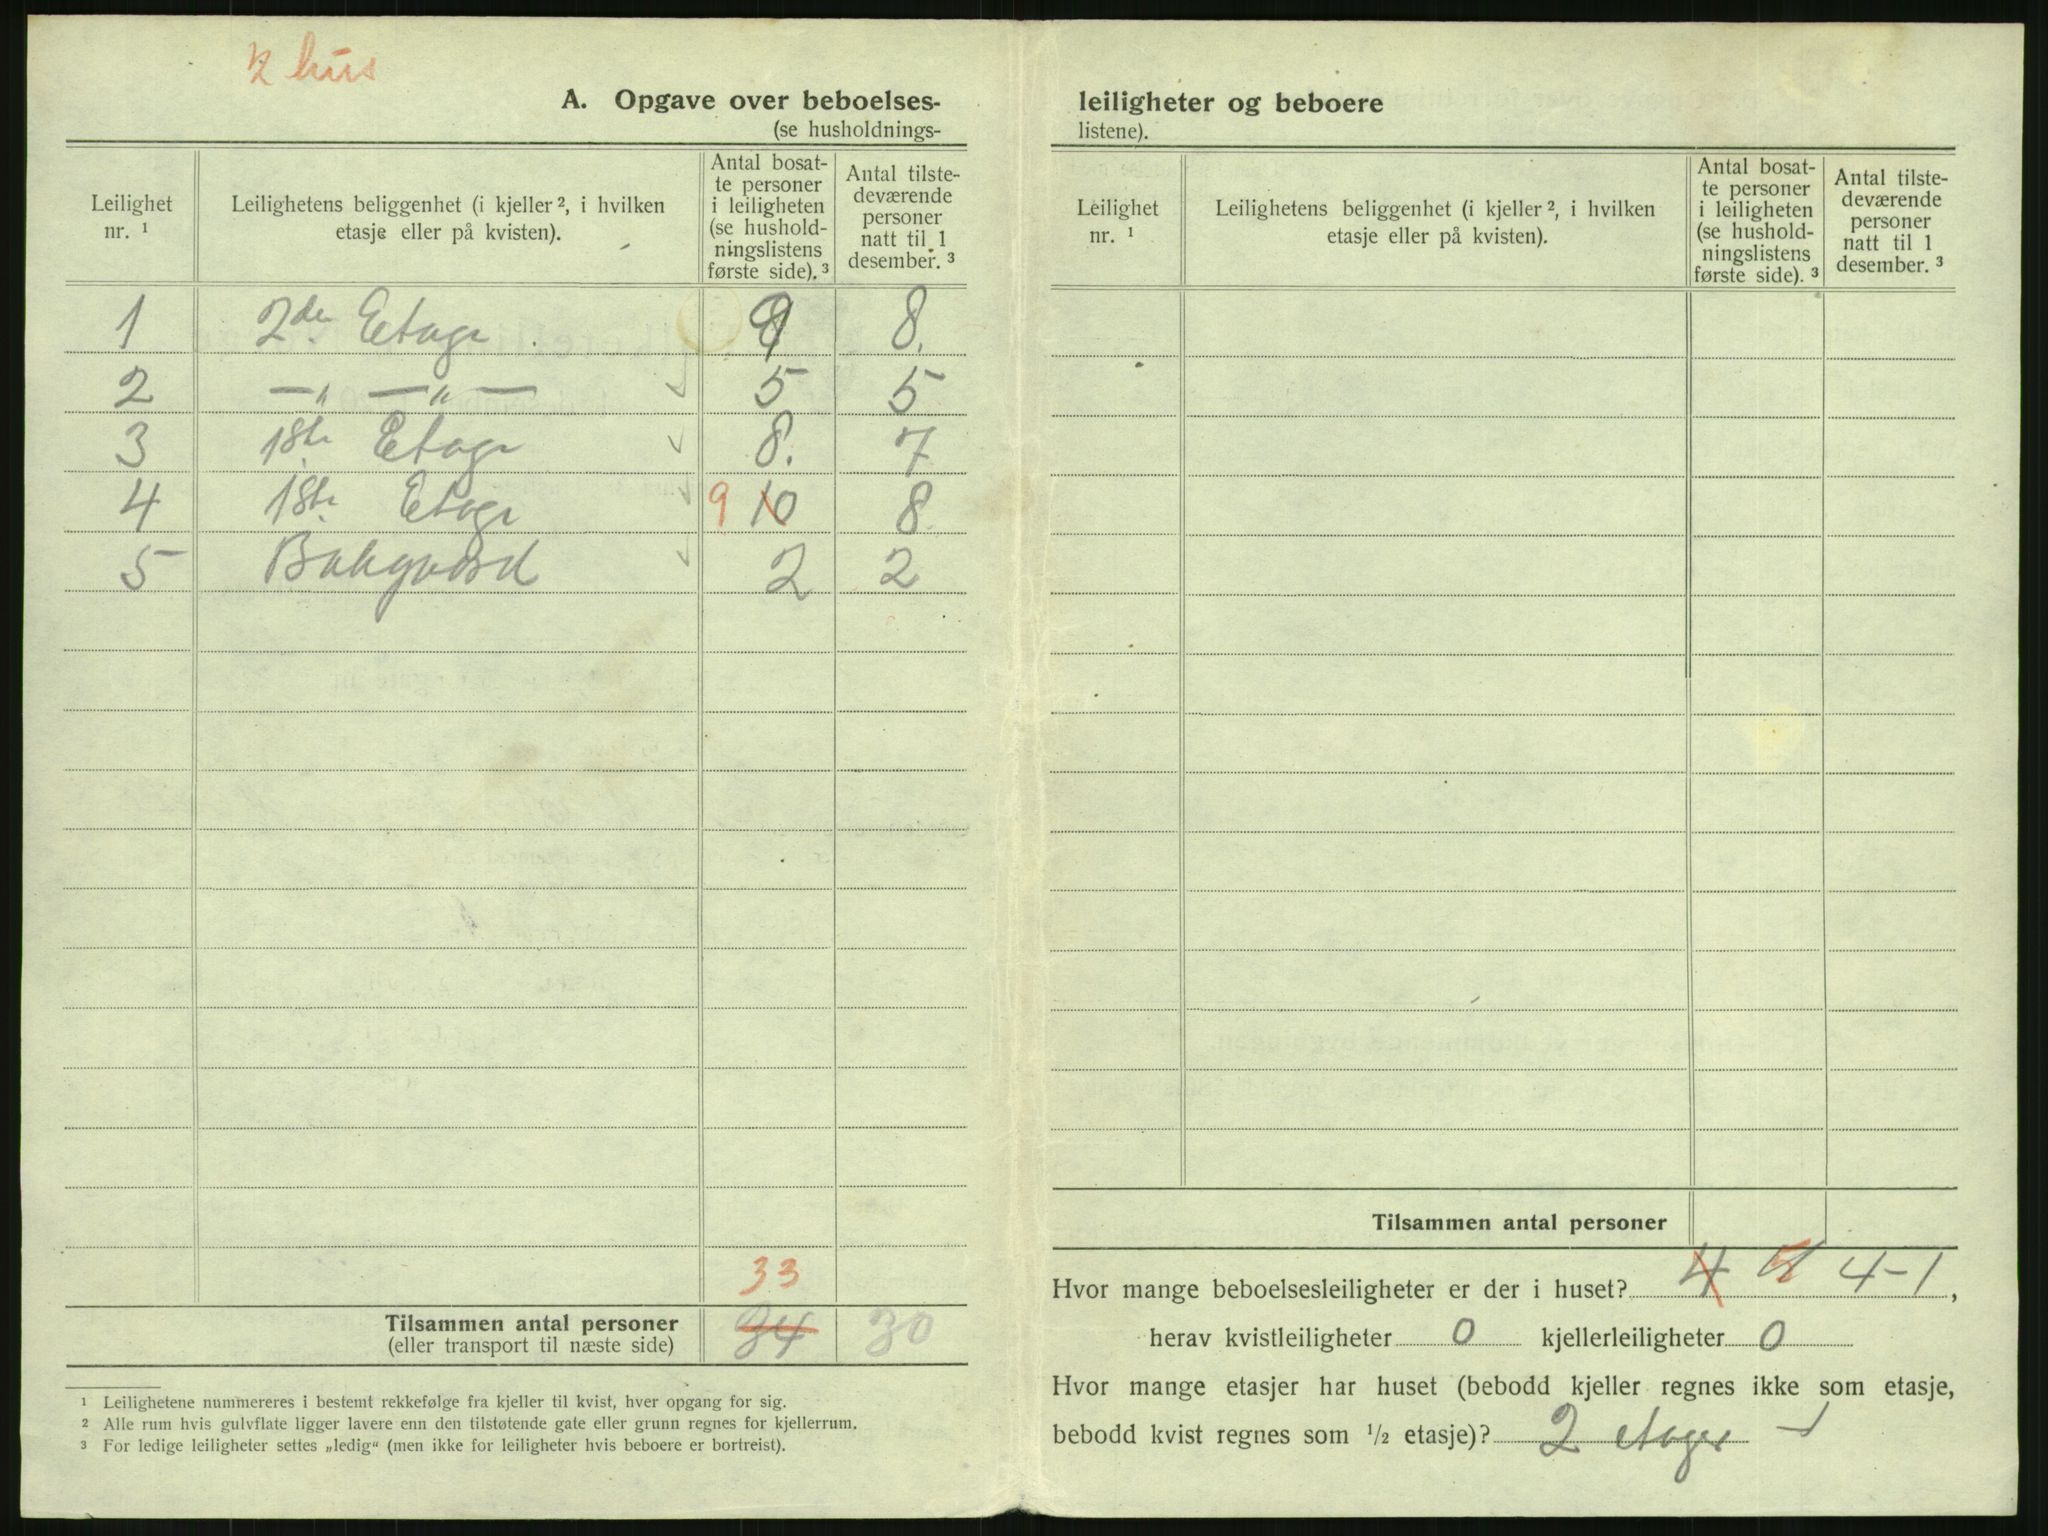 2 hus
A. Opgave over beboelses-
(se husholdnings-
Leilighet nr. ¹
Leilighetens beliggenhet (i kjeller ², i hvilken etasje eller på kvisten).
Antal bosatte personer i leiligheten (se husholdningslistens første side). ³
Antal tilstedeværende personer natt til 1 desember. ³
1 2den Etage 9 8.
2 —„—„— 5 5
3 1ste Etage 8. 7
4 1ste Etage 9 10 8
5 Bakgaard 2 2
33
Tilsammen antal personer 34 30
(eller transport til næste side)
¹ Leilighetene nummereres i bestemt rekkefølge fra kjeller til kvist, hver opgang for sig.
² Alle rum hvis gulvflate ligger lavere enn den tilstøtende gate eller grunn regnes for kjellerrum.
³ For ledige leiligheter settes „ledig“ (men ikke for leiligheter hvis beboere er bortreist).
leiligheter og beboere
listene).
Leilighet nr. ¹
Leilighetens beliggenhet (i kjeller ², i hvilken etasje eller på kvisten).
Antal bosatte personer i leiligheten (se husholdningslistens første side). ³
Antal tilstedeværende personer natt til 1 desember. ³
Tilsammen antal personer
Hvor mange beboelsesleiligheter er der i huset? 4 4-1,
herav kvistleiligheter 0 kjellerleiligheter 0
Hvor mange etasjer har huset (bebodd kjeller regnes ikke som etasje,
bebodd kvist regnes som ½ etasje)? 2 etager